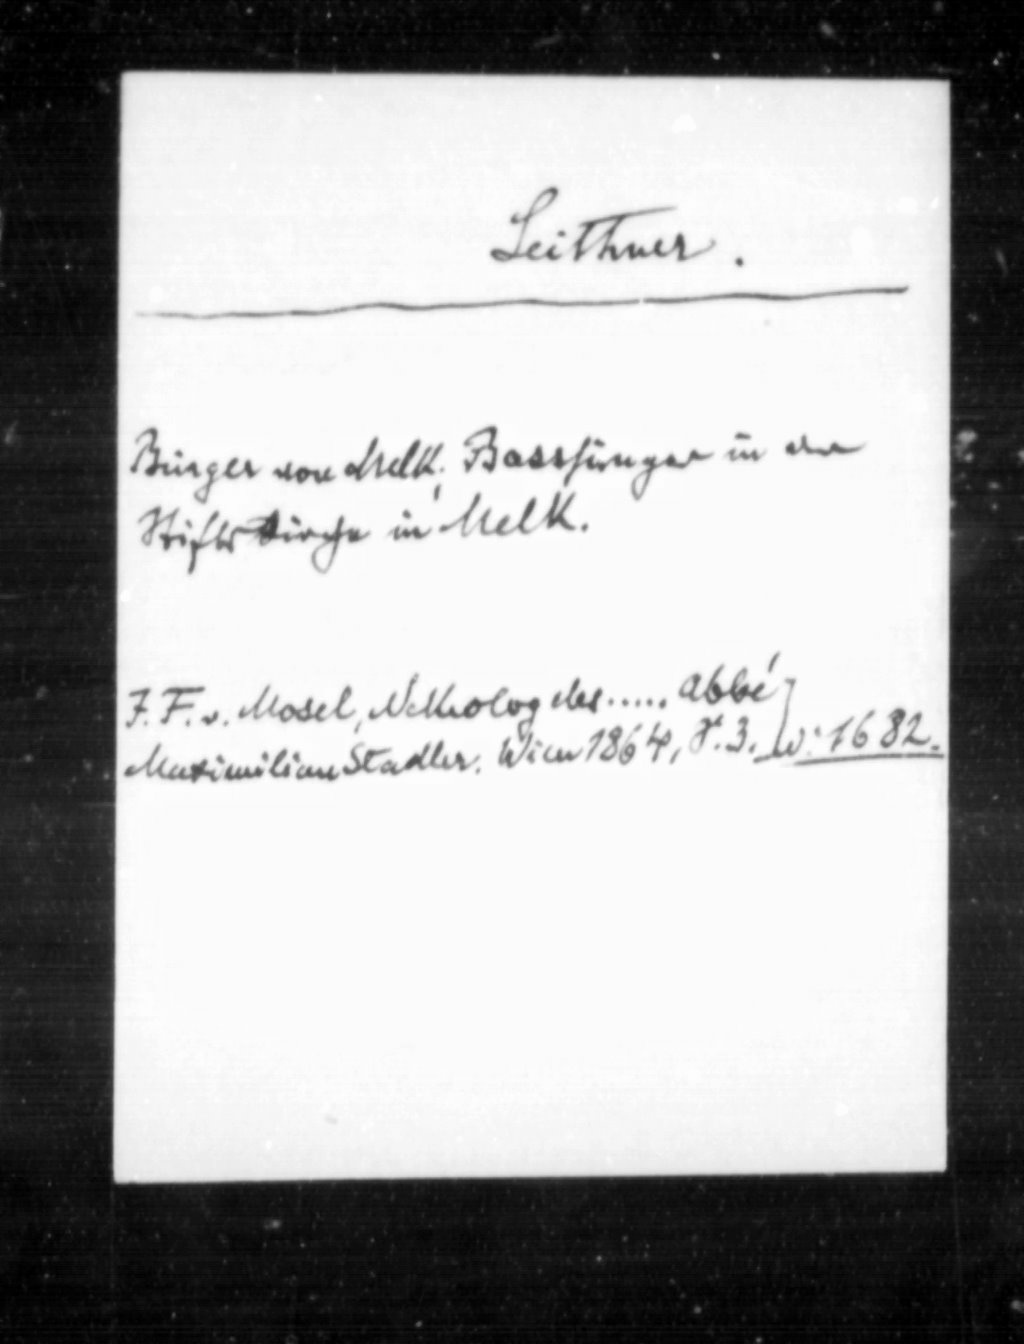 Leithner.
Bürger von Melk, Basssänger in der
Stiftskirche in Melk.
J. F. v. Mosel, Nekrolog des..... Abbé
Maximilian Stadler. Wien 1864, S. 3. W: 1682.